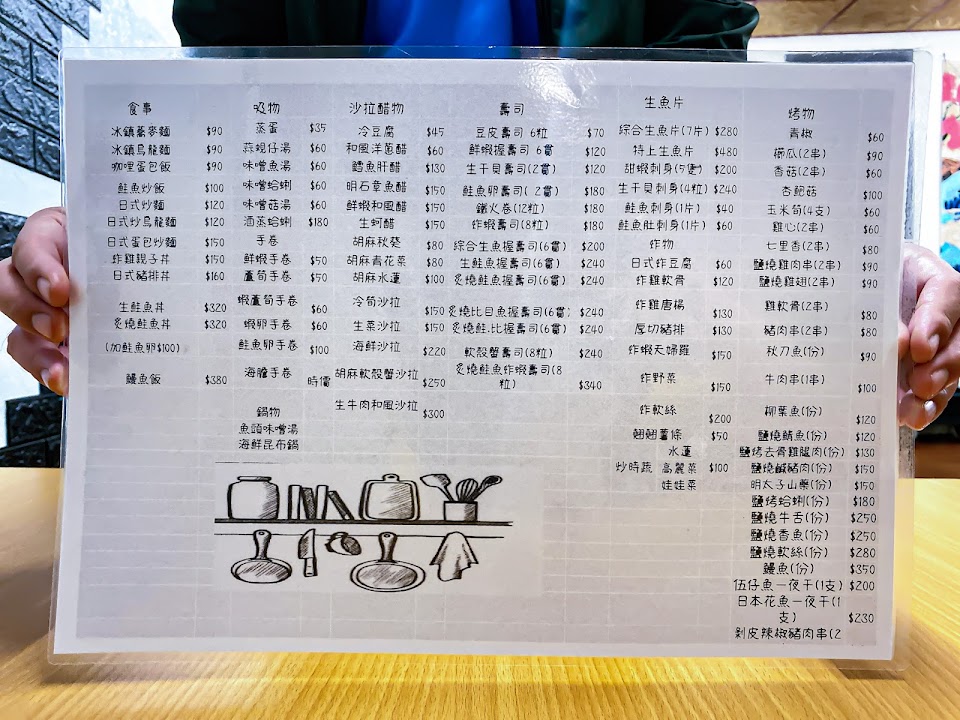 食事
冰鎮蕎麥麵 $90
冰鎮烏龍麵 $90
咖哩蛋包飯 $90
鮭魚炒飯 $100
日式炒麵 $120
日式炒烏龍麵 $120
日式蛋包炒麵 $150
炸雞親子丼 $150
日式豬排丼 $160
生鮭魚丼 $320
炙燒鮭魚丼 $320
(加鮭魚卵$100)
鰻魚飯 $380
吸物
蒸蛋 $35
蒜蜆仔湯 $60
味噌魚湯 $60
味噌蛤蜊 $60
味噌菇湯 $60
酒蒸蛤蜊 $180
手卷
鮮蝦手卷 $50
蘆筍手卷 $50
蝦蘆筍手卷 $60
蝦卵手卷 $60
鮭魚卵手卷 $100
海膽手卷 時價
鍋物
魚頭味噌湯
海鮮昆布鍋
沙拉醋物
冷豆腐 $45
和風洋蔥醋 $60
鱈魚肝醋 $130
明石章魚醋 $150
鮮蝦和風醋 $150
生蚵醋 $150
胡麻秋葵 $80
胡麻青花菜 $80
胡麻水蓮 $100
冷筍沙拉 $150
生菜沙拉 $150
海鮮沙拉 $220
胡麻軟殼蟹沙拉 $250
生牛肉和風沙拉 $300
壽司
豆皮壽司 6粒 $70
鮮蝦握壽司 6貫 $120
生干貝壽司(2貫) $120
鮭魚卵壽司( 2貫) $180
鐵火卷(12粒) $180
炸蝦壽司(8粒) $150
綜合生魚握壽司(6貫) $200
生鮭魚握壽司(6貫) $240
炙燒鮭魚握壽司(6貫) $240
炙燒比目魚握壽司(6貫) $240
炙燒鮭.比握壽司(6貫) $240
軟殼蟹壽司(8粒) $240
炙燒鮭魚炸蝦壽司(8
粒) $340
生魚片
綜合生魚片(7片) $280
特上生魚片 $480
甜蝦刺身(5隻) $200
生干貝刺身(4粒) $240
鮭魚刺身(1片) $40
鮭魚肚刺身(1片) $60
炸物
日式炸豆腐 $60
炸雞軟骨 $120
炸雞唐楊 $130
厚切豬排 $130
炸蝦天婦羅 $150
炸野菜 $150
炸軟絲 $200
翹翹薯條 $50
水蓮
炒時蔬 高麗菜 $100
娃娃菜
烤物
青椒 $60
櫛瓜(2串) $90
香菇(2串) $60
杏鮑菇 $100
玉米筍(4支) $60
雞心(2串) $60
七里香(2串) $80
鹽燒雞肉串(2串) $90
鹽燒雞翅(2串) $90
雞軟骨(2串) $80
豬肉串(2串) $80
秋刀魚(份) $90
牛肉串(1串) $100
柳葉魚(份) $120
鹽燒鯖魚(份) $120
鹽烤去骨雞腿肉(份) $130
鹽燒鹹豬肉(份) $150
明太子山藥(份) $150
鹽烤蛤蜊(份) $180
鹽燒牛舌(份) $250
鹽燒香魚(份) $250
鹽燒軟絲(份) $280
鰻魚(份) $350
伍仔魚一夜干(1支) $200
日本花魚一夜干(1
支) $230
剝皮辣椒豬肉串(2